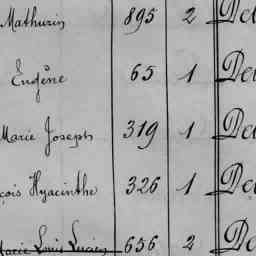 Mathurin 895 2 De
Eugène 65 1 De
Marie Joseph 319 1 De
çois Hyacinthe 326 1 De
Marie Louis Lucien 656 2 De